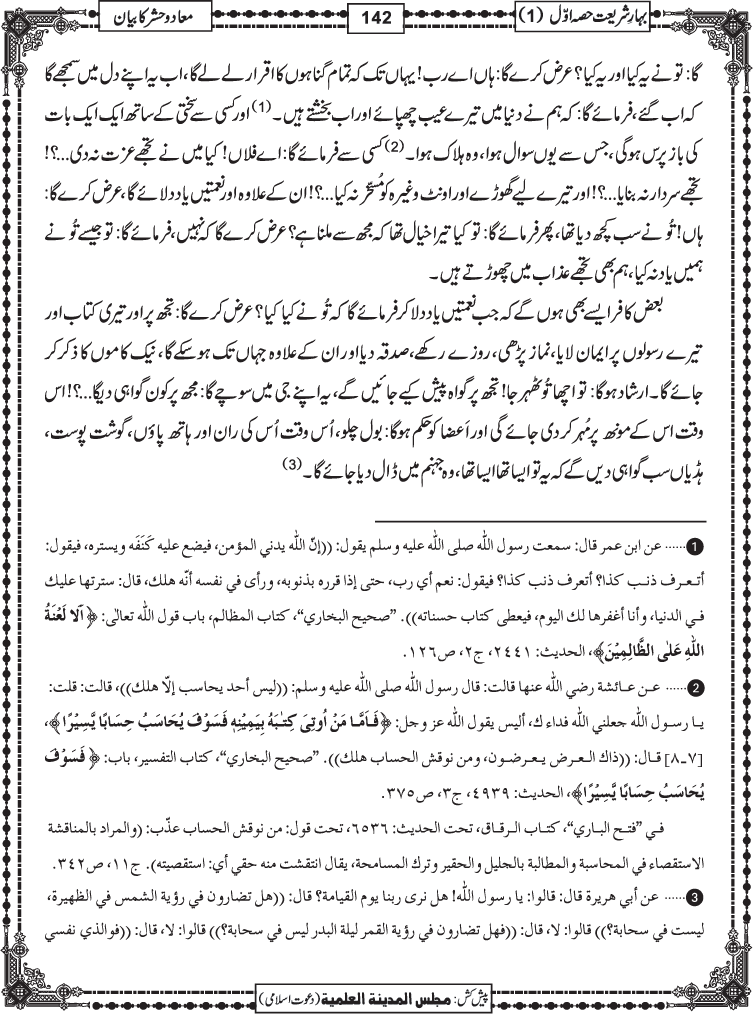 بہارِشریعت حصہ اوّل (1)
142
معاد و حشر کا بیان
گا: تو نے یہ کیا اور یہ کیا؟ عرض کرے گا: ہاں اے رب! یہاں تک کہ تمام گناہوں کا اقرار لے لے گا، اب یہ اپنے دل میں سمجھے گا
کہ اب گئے، فرمائے گا: کہ ہم نے دنیا میں تیرے عیب چھپائے اور اب بخشتے ہیں۔(1) اور کسی سے سختی کے ساتھ ایک ایک بات
کی باز پرس ہوگی، جس سے یوں سوال ہوا، وہ ہلاک ہوا۔(2) کسی سے فرمائے گا: اے فلاں! کیا میں نے تجھے عزت نہ دی...؟!
تجھے سردار نہ بنایا...؟! اور تیرے لیے گھوڑے اور اونٹ وغیرہ کو مُسخّر نہ کیا...؟! ان کے علاوہ اور نعمتیں یاد دلائے گا، عرض کرے گا:
ہاں! تُو نے سب کچھ دیا تھا، پھر فرمائے گا: تو کیا تیرا خیال تھا کہ مجھ سے ملنا ہے؟ عرض کرے گا کہ نہیں، فرمائے گا: تو جیسے تُو نے
ہمیں یاد نہ کیا، ہم بھی تجھے عذاب میں چھوڑتے ہیں۔
بعض کافر ایسے بھی ہوں گے کہ جب نعمتیں یاد دلا کر فرمائے گا کہ تُو نے کیا کیا؟ عرض کرے گا: تجھ پر اور تیری کتاب اور
تیرے رسولوں پر ایمان لایا، نماز پڑھی، روزے رکھے، صدقہ دیا اور ان کے علاوہ جہاں تک ہو سکے گا، نیک کاموں کا ذکر کر
جائے گا۔ ارشاد ہوگا: تو اچھا تُو ٹھہر جا! تجھ پر گواہ پیش کیے جائیں گے، یہ اپنے جی میں سوچے گا: مجھ پر کون گواہی دیگا...؟! اس
وقت اس کے مونھ پر مُہر کر دی جائے گی اور اَعضا کو حکم ہوگا: بول چلو، اُس وقت اُس کی ران اور ہاتھ پاؤں، گوشت پوست،
ہڈیاں سب گواہی دیں گے کہ یہ تو ایسا تھا ایسا تھا، وہ جہنم میں ڈال دیا جائے گا۔(3)
1...... عن ابن عمر قال: سمعت رسول اللّٰه صلی اللّٰه علیه وسلم یقول: ((إنّ اللّٰه یدني المؤمن، فیضع علیه کَنَفَه ویستره، فیقول:
أتعرف ذنب کذا؟ أتعرف ذنب کذا؟ فیقول: نعم أي رب، حتی إذا قرره بذنوبه، ورأی في نفسه أنّه هلك، قال: سترتها علیك
في الدنیا، وأنا أغفرها لك الیوم، فیعطی کتاب حسناته)). ”صحیح البخاري“، کتاب المظالم، باب قول اللّٰه تعالی: ﴿اَلَا لَعْنَةُ
اللّٰهِ عَلَی الظّٰلِمِیْنَ﴾، الحدیث: ۲۴۴۱، ج۲، ص۱۲۶.
2...... عن عائشة رضي اللّٰه عنها قالت: قال رسول اللّٰه صلی اللّٰه علیه وسلم: ((لیس أحد یحاسب إلّا هلك))، قالت: قلت:
یا رسول اللّٰه جعلني اللّٰه فداء ك، ألیس یقول اللّٰه عز وجل: ﴿فَاَمَّا مَنْ اُوْتِیَ كِتٰبَهٗ بِیَمِیْنِهٖ فَسَوْفَ یُحَاسَبُ حِسَابًا یَّسِیْرًا﴾،
[۷-۸] قال: ((ذاك العرض یعرضون، ومن نوقش الحساب هلك)). ”صحیح البخاري“، کتاب التفسیر، باب: ﴿فَسَوْفَ
یُحَاسَبُ حِسَابًا یَّسِیْرًا﴾، الحدیث: ۴۹۳۹، ج۳، ص۳۷۵.
في ”فتح الباري“، کتاب الرقاق، تحت الحدیث: ۶۵۳۶، تحت قول: من نوقش الحساب عذّب: (والمراد بالمناقشة
الاستقصاء في المحاسبة والمطالبة بالجلیل والحقیر وترك المسامحة، یقال انتقشت منه حقي أي: استقصیته). ج۱۱، ص۳۴۲.
3...... عن أبي هریرة قال: قالوا: یا رسول اللّٰه! هل نری ربنا یوم القیامة؟ قال: ((هل تضارون في رؤیة الشمس في الظهیرة،
لیست في سحابة؟)) قالوا: لا، قال: ((فهل تضارون في رؤیة القمر لیلة البدر لیس في سحابة؟)) قالوا: لا، قال: ((فوالذي نفسي
پیش کش: مجلس المدینة العلمیة (دعوت اسلامی)